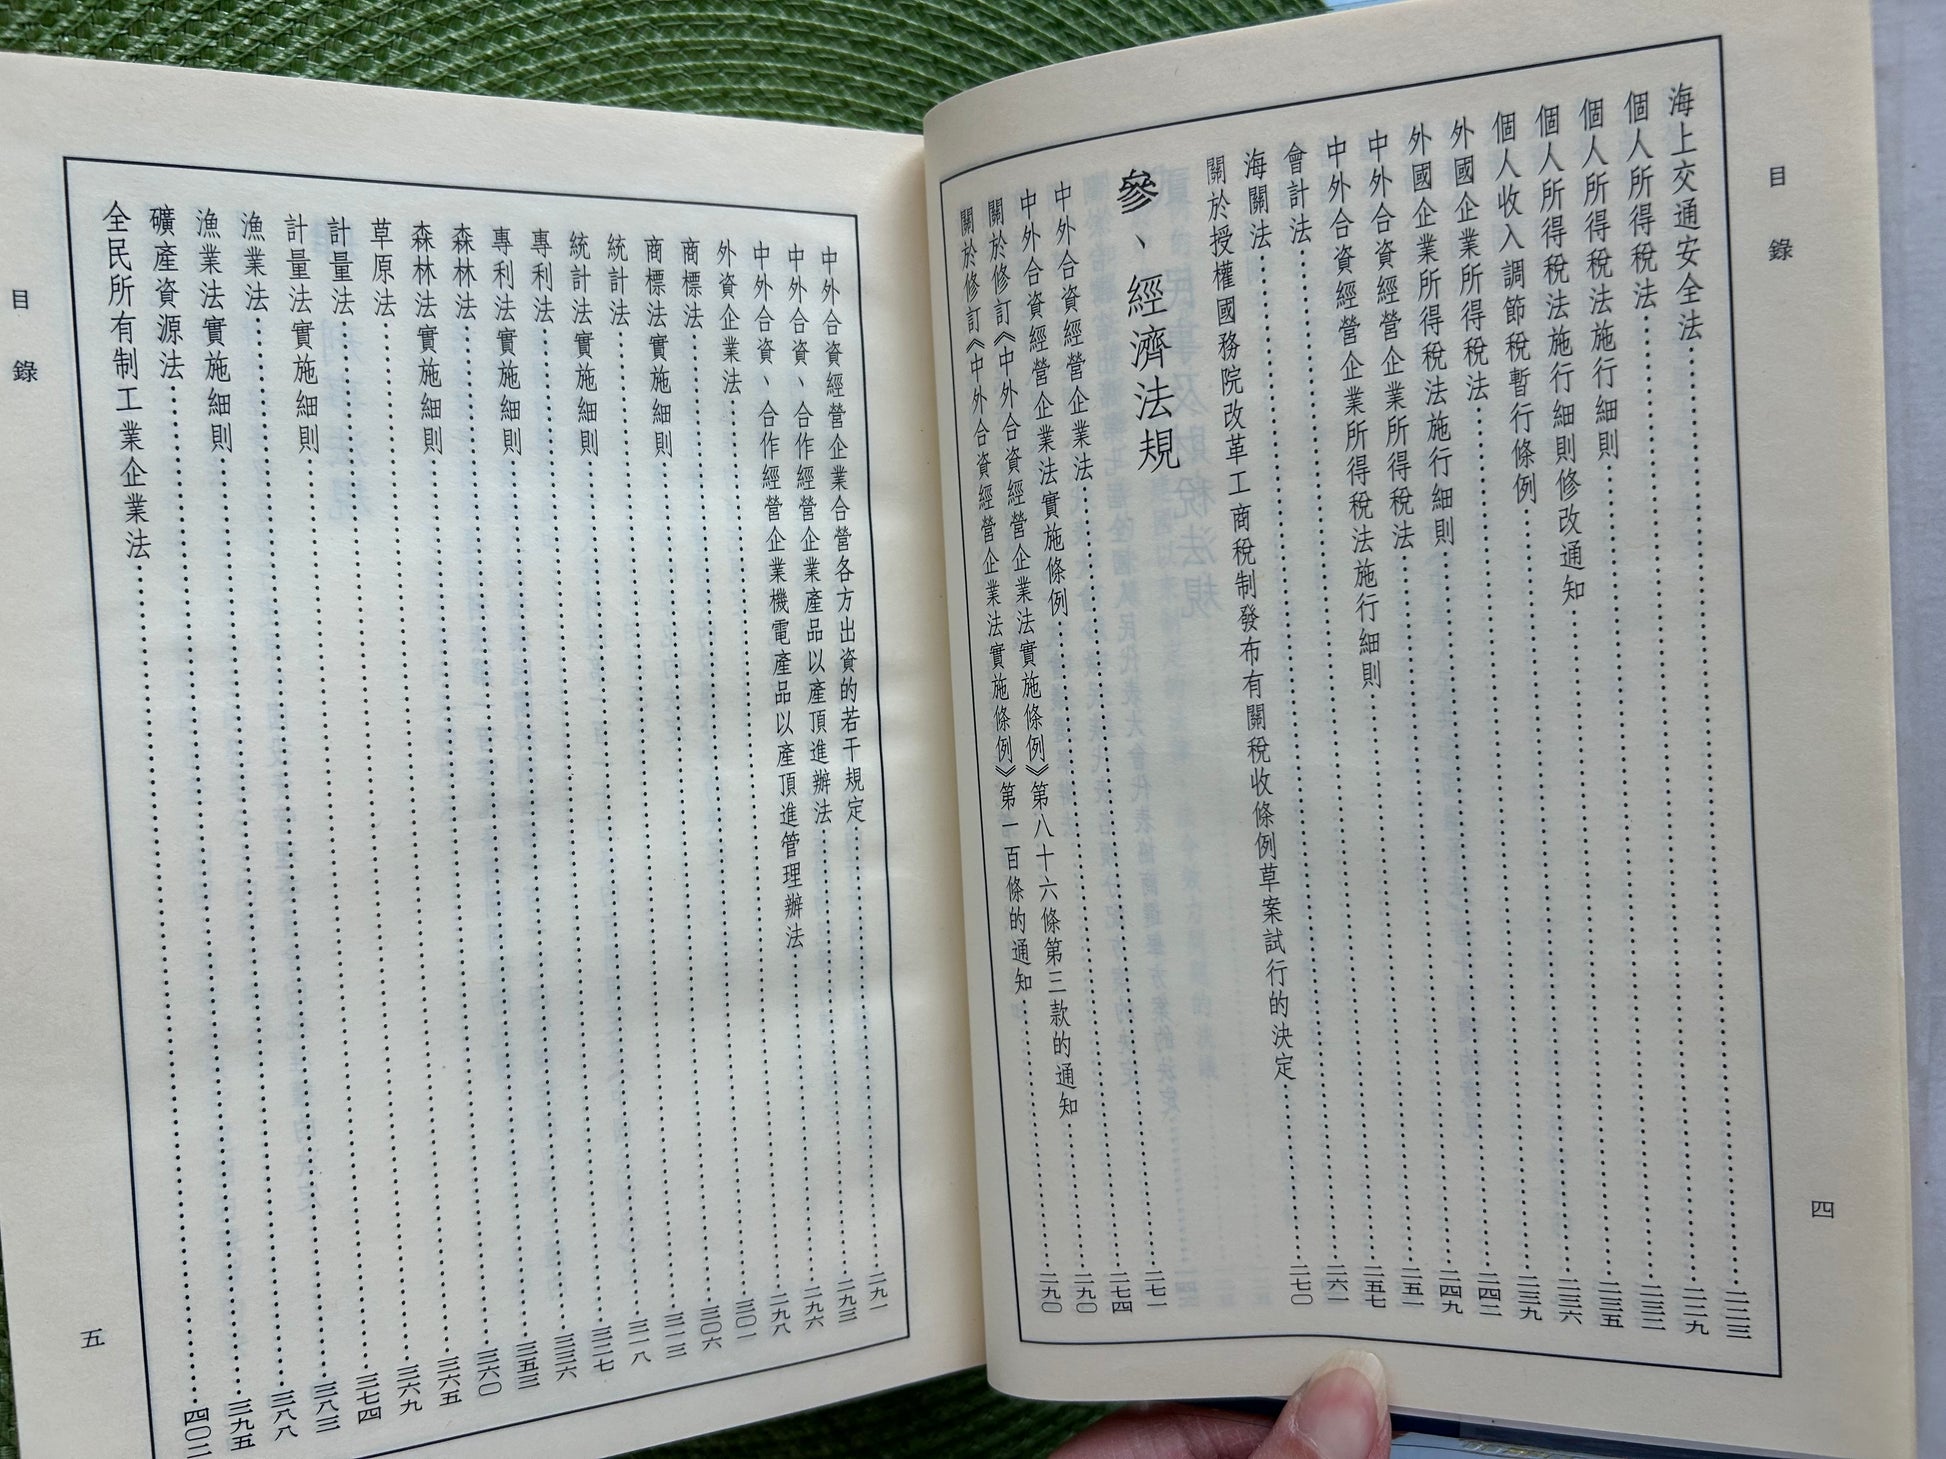 目錄
四
海上交通安全法……二二三
個人所得稅法……二二九
個人所得稅法施行細則……二三二
個人所得稅法施行細則修改通知……二三五
個人收入調節稅暫行條例……二三六
外國企業所得稅法……二三九
外國企業所得稅法施行細則……二四二
中外合資經營企業所得稅法……二四九
中外合資經營企業所得稅法施行細則……二五一
會計法……二五七
海關法……二六一
關於授權國務院改革工商稅制發布有關稅收條例草案試行的決定……二七〇
參、經濟法規
中外合資經營企業法……二七一
中外合資經營企業法實施條例……二七四
關於修訂《中外合資經營企業法實施條例》第八十六條第三款的通知……二九〇
關於修訂《中外合資經營企業法實施條例》第一百條的通知……二九〇
中外合資經營企業合營各方出資的若干規定……二九一
中外合資、合作經營企業產品以產頂進辦法……二九三
中外合資、合作經營企業機電產品以產頂進管理辦法……二九六
外資企業法……二九八
商標法……三〇一
商標法實施細則……三〇六
統計法……三一三
統計法實施細則……三一八
專利法……三二七
專利法實施細則……三三六
森林法……三五三
森林法實施細則……三六〇
草原法……三六五
計量法……三六九
計量法實施細則……三七四
漁業法……三八三
漁業法實施細則……三八八
礦產資源法……三九五
全民所有制工業企業法……四〇二
目錄
五